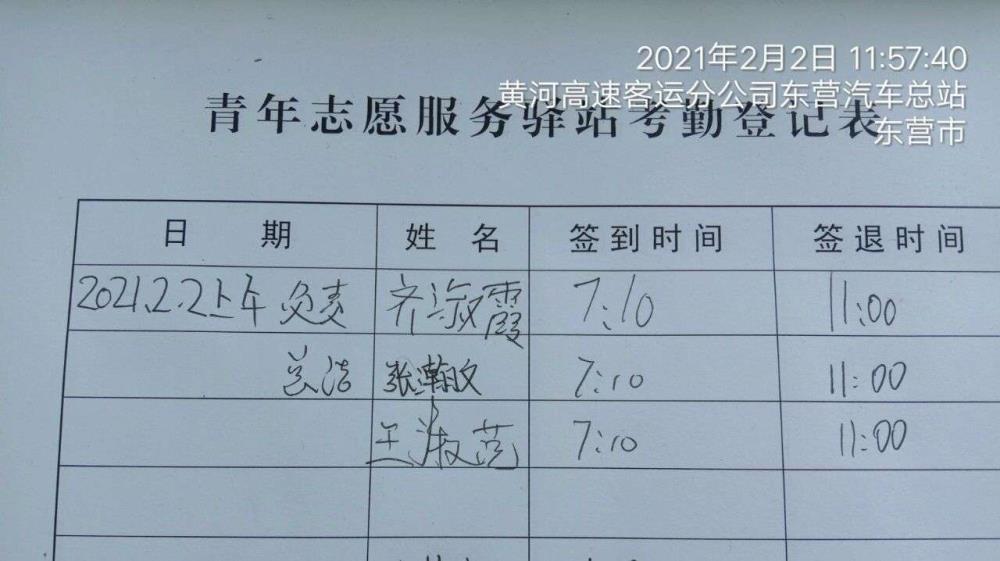 2021年2月2日 11:57:40
黄河高速客运分公司东营汽车总站
东营市
青年志愿服务驿站考勤登记表
日 期 姓 名 签到时间 签退时间
2021.2.2上午 负责 齐淑霞 7:10 11:00
张瀚文 7:10 11:00
王淑范 7:10 11:00